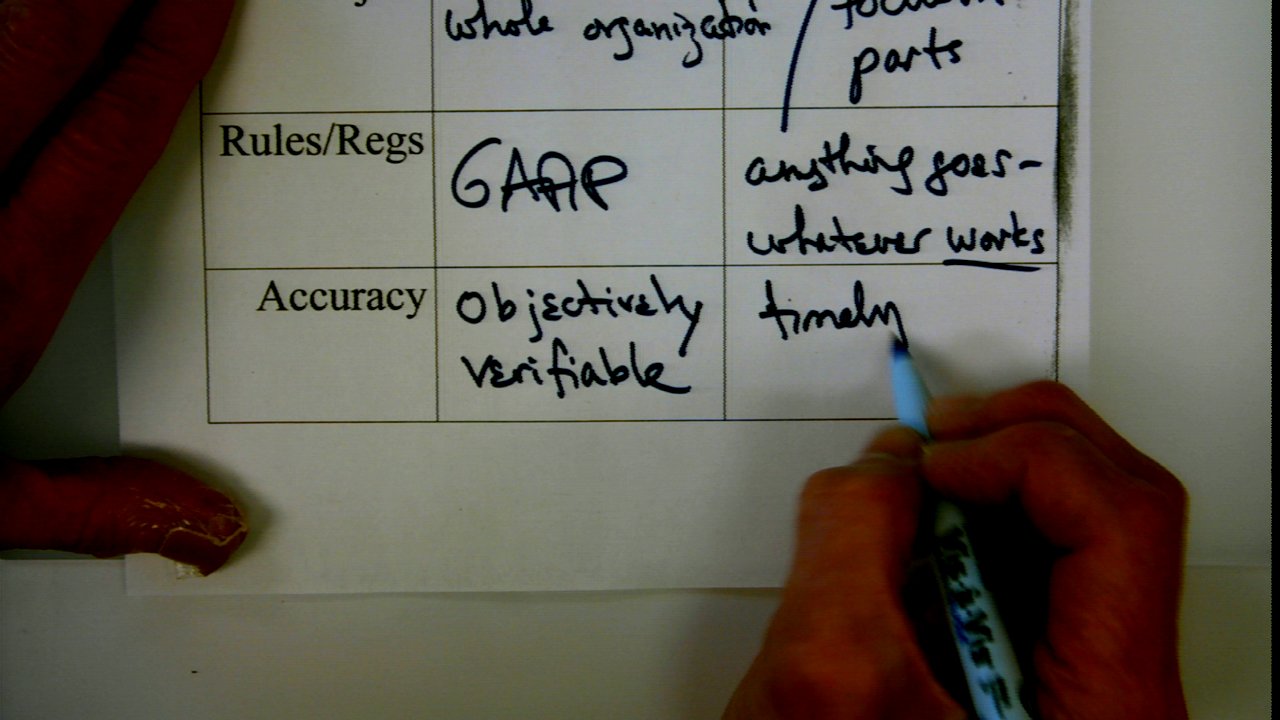 whole organization
parts
Rules/Regs
GAAP
anything goes-
whatever works
Accuracy
Objectively
verifiable
timely